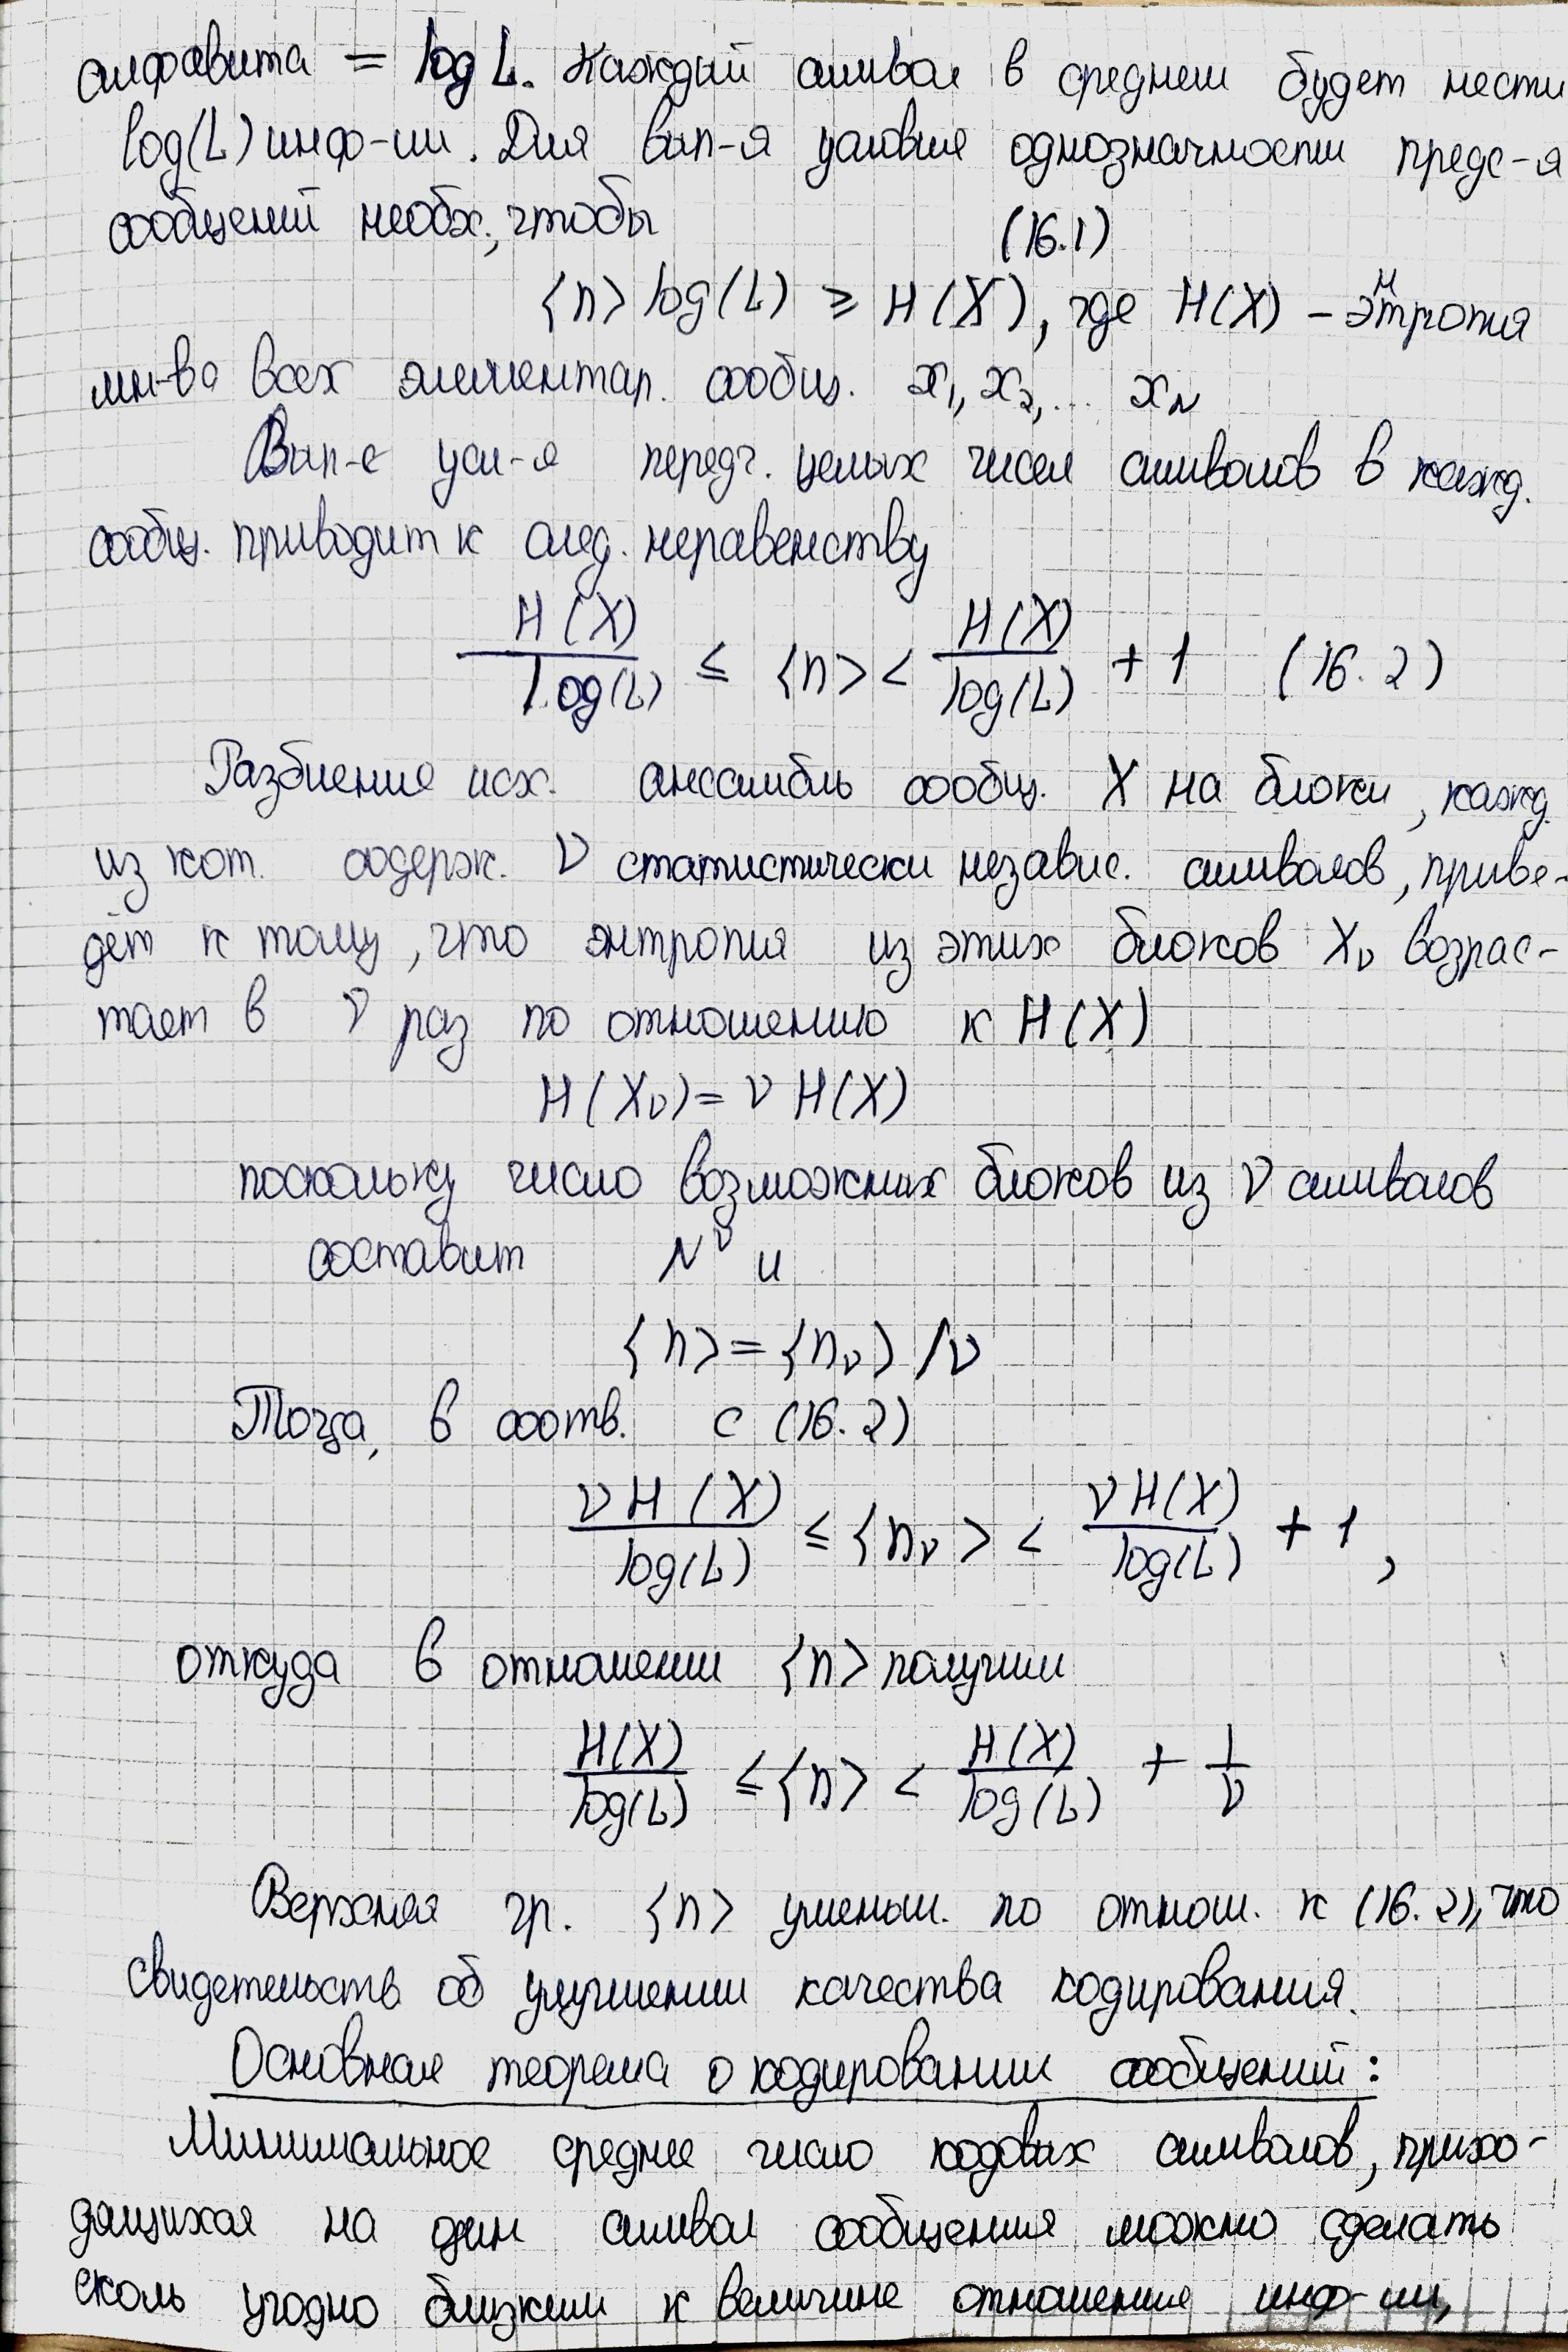 алфавита = log L. Каждый символ в среднем будет нести
log(L) инф-ии. Для вып-я условия однозначности предс-я
сообщений необх., чтобы (16.1)
⟨n⟩ log(L) ≥ H(X), где H(X) – энтропия
мн-во всех элементар. сообщ. x₁, x₂, ... x_N
Вып-е усл-я передч. целых чисел символов в кажд.
сообщ. приводит к след. неравенству
H(X)/log(L) ≤ ⟨n⟩ < H(X)/log(L) + 1 (16.2)
Разбиение исх. ансамбль сообщ. X на блоки, кажд.
из кот. содерж. ν статистически независ. символов, приве-
дёт к тому, что энтропия из этих блоков X_ν возрас-
тает в ν раз по отношению к H(X)
H(X_ν) = ν H(X)
поскольку число возможных блоков из ν символов
составит N^ν и
⟨n⟩ = ⟨n_ν⟩ /ν
Тогда, в соотв. с (16.2)
νH(X)/log(L) ≤ ⟨n_ν⟩ < νH(X)/log(L) + 1,
откуда в отношении ⟨n⟩ получим
H(X)/log(L) ≤ ⟨n⟩ < H(X)/log(L) + 1/ν
Верхняя гр. ⟨n⟩ уменьш. по отнош. к (16.2), что
свидетельств об улучшении качества кодирования.
Основная теорема о кодировании сообщений:
Минимальное среднее число кодовых символов, прихо-
дящихся на один символ сообщения можно сделать
сколь угодно близким к величине отношения инф-ии,